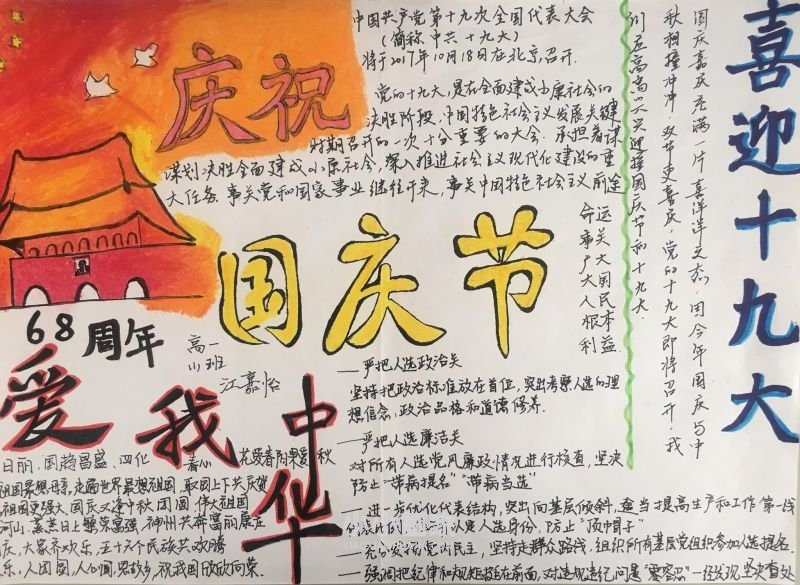 喜迎十九大
国庆嘉庆充满一片喜洋洋之态,因今年国庆与中
秋相撞冲冲,双节更喜庆,党的十九大即将召开,我
们应高高兴兴迎接国庆节和十九大
中国共产党第十九次全国代表大会
(简称中共十九大)
将于2017年10月18日在北京召开.
党的十九大,是在全面建成小康社会的
决胜阶段、中国特色社会主义发展关键
时期召开的一次十分重要的大会.承担着谋
谋划决胜全面建成小康社会,深入推进社会主义现代化建设的重
大任务.事关党和国家事业继往开来,事关中国特色社会主义前途
命运
事关
广大
大国
人民
根本
利益.
庆祝
国庆节
68周年
高一
班
江嘉怡
爱我中华
一严把人选政治关
坚持把政治标准放在首位,突出考察人选的理
想信念,政治品格和道德修养.
一严把人选廉洁关
对所有人选党风廉政情况进行核查,坚决
防止"带病提名""带病当选"
一进一步优化代表结构,突出向基层倾斜,适当提高生产和工作第一线
代表比例,认定人选身份,防止"顶帽子"
一充分发扬党内民主,坚持走群众路线,组织所有基层党组织参加人选提名.
一强调把纪律和规矩挺在前面,对违规违纪问题"零容忍"一经发现坚决查处
日丽,国趋昌盛,四化春心花绽春周果爱秋
祖国最想母亲,走遍世界最想祖国,取国上下共庆贺
祖国更强大,国庆又逢中秋团圆,伟大祖国
河山,蒸蒸日上繁荣富强,神州共奔富丽康庄
庆,大家齐欢乐,五十六个民族共欢腾
乐,人团圆,人心圆,思故乡,祝我国欣欣向荣.